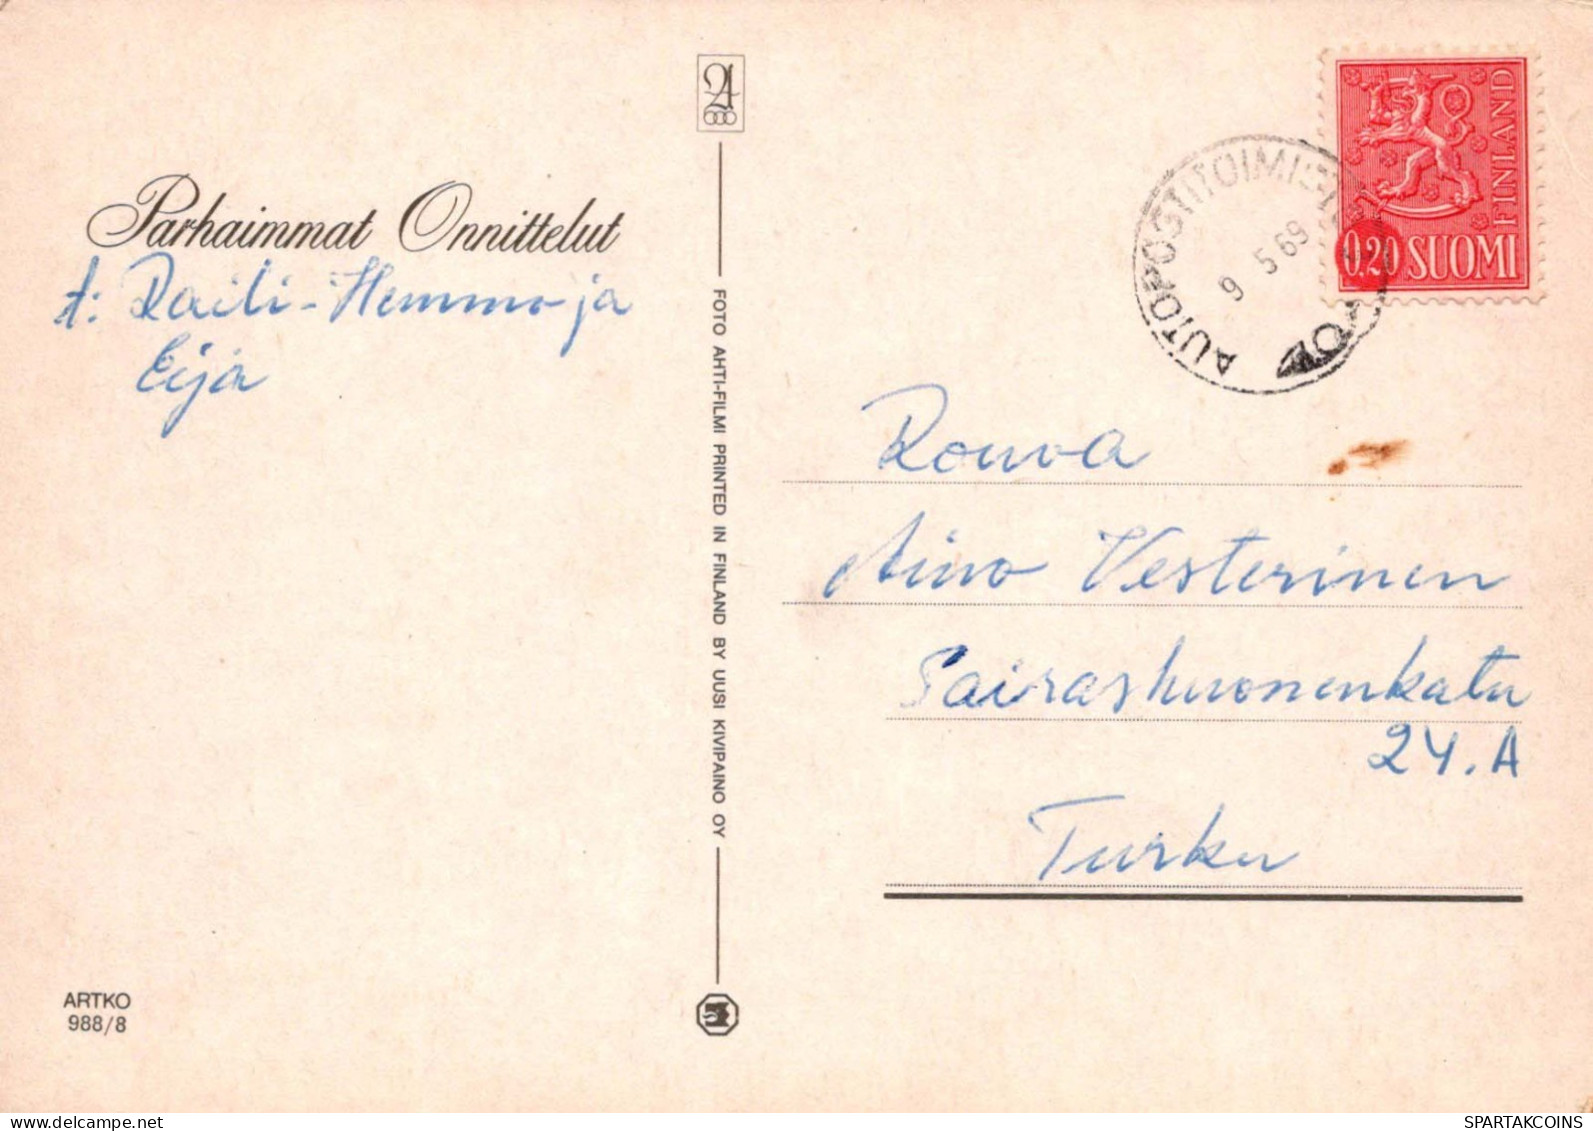 Parhaimmat Onnittelut
t: Raili-Hemmo ja
Eija
FOTO AHTI-FILMI PRINTED IN FINLAND BY UUSI KIVIPAINO OY
ARTKO
988/8
FINLAND
0.20 SUOMI
AUTOPOSTITOIMISTO
9 5 69
Rouva
Aino Vesterinen
Sairashuonenkatu
24.A
Turku
SPARTAKCOINS